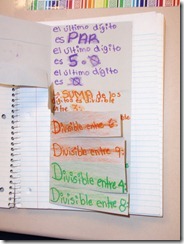 el ultimo dígito
es PAR
el ultimo dígito
es 5 o 0
el ultimo dígito
es 0
SUMA de los
dígitos es divisible
entre
Divisible entre 6:
Divisible entre 9:
Divisible entre 4:
Divisible entre 8: